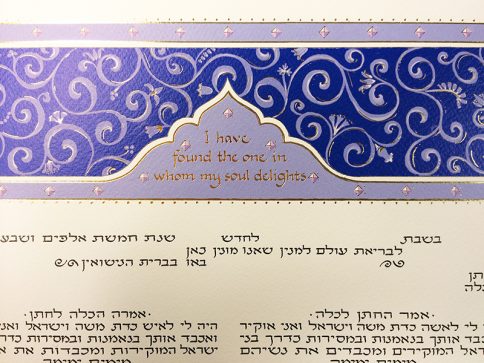 I have
found the one in
whom my soul delights
בשבת לחדש שנת חמשת אלפים ושבע
לבריאת עולם למנין שאנו מונין כאן
באו בברית הנישואין
כלה
·אמר החתן לכלה·
לי לאשה כדת משה וישראל ואני אוקיר
אותך בנאמנות ובמסירות כדרך בני
המוקירים ומכבדים את נשיהם
מימים ימימה
·אמרה הכלה לחתן·
היה לי לאיש כדת משה וישראל ואני
ואכבד אותך בנאמנות ובמסירות כדרך
ישראל המוקירות ומכבדות את
מימים ימימה